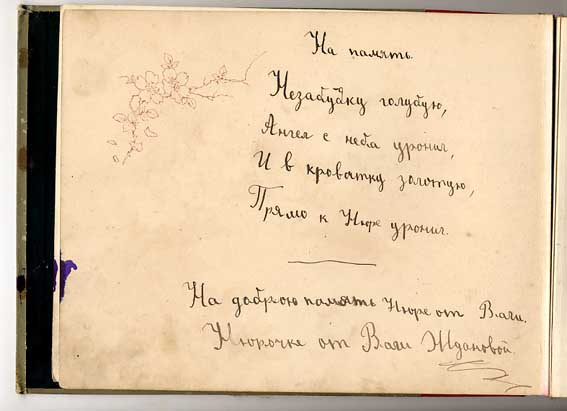 На память.
Незабудку голубую,
Ангел с неба уронил,
И в кроватку золотую,
Прямо к Нюре уронил.
На доброю память Нюре от Вали.
Нюрочке от Вали Ждановой.